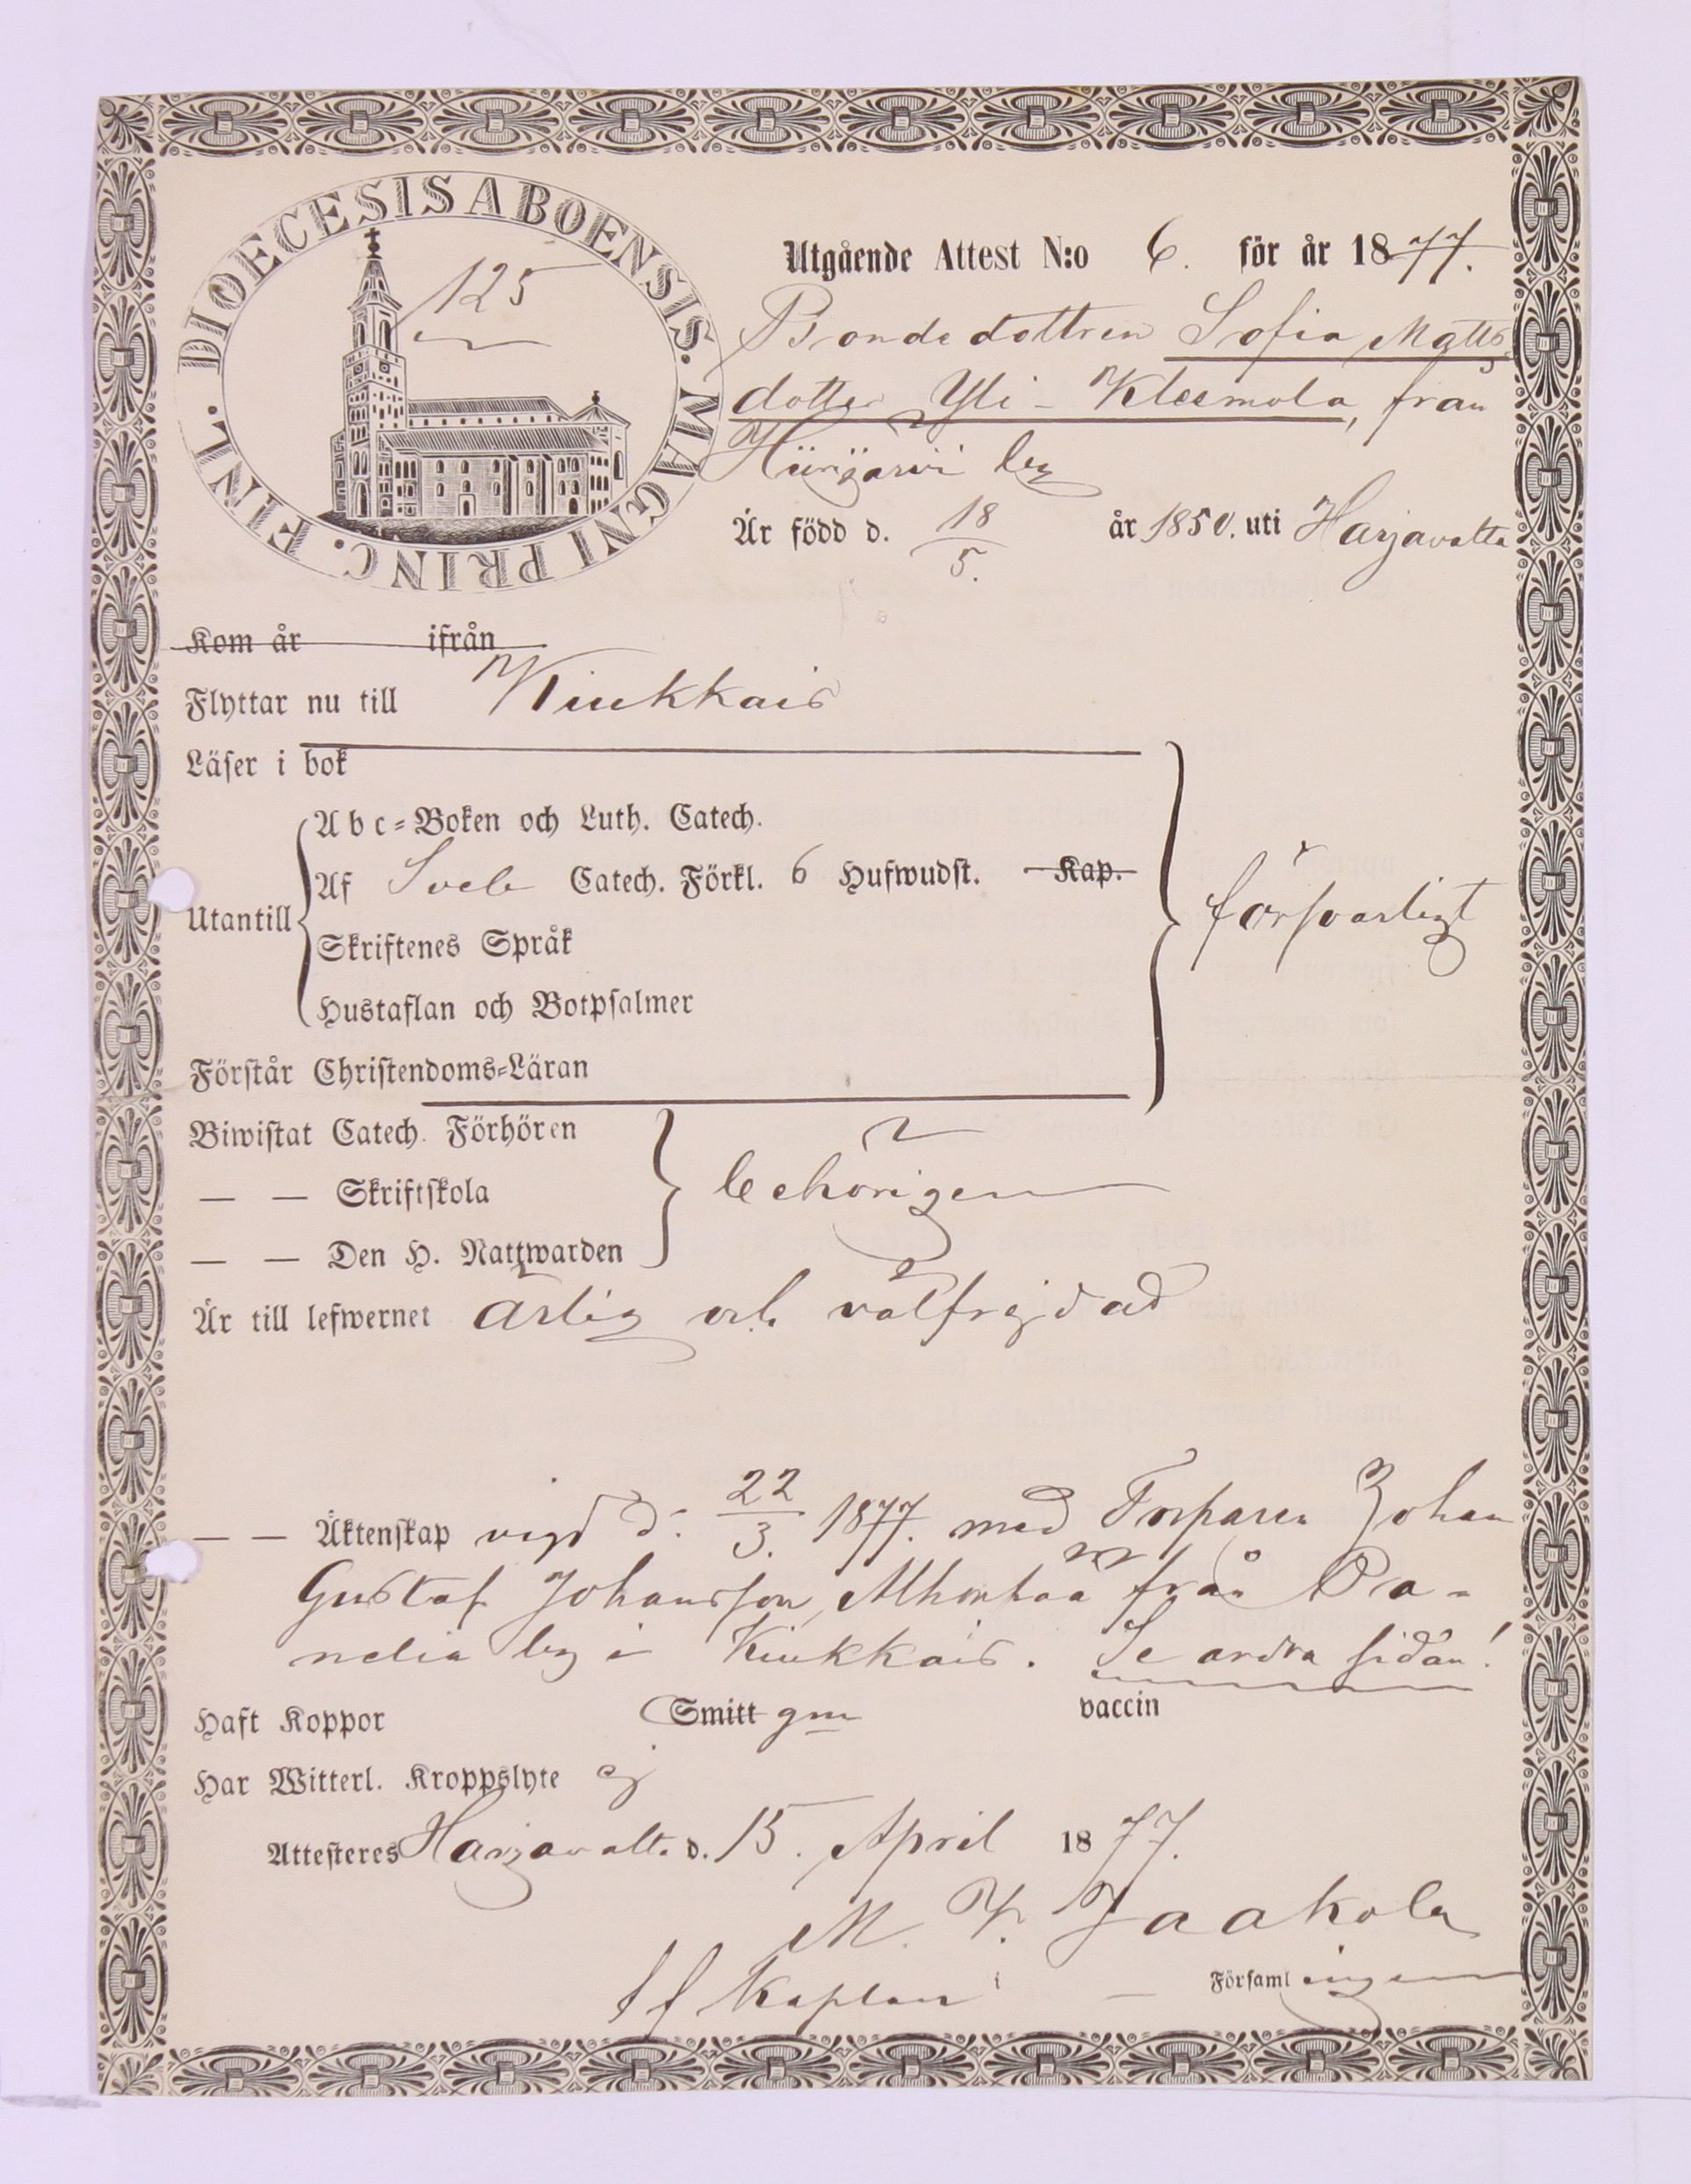 DIOECESIS ABOENSIS. MAGNI PRINC. FINL.
125
Utgående Attest N:o 6. för år 1877.
Bondedottren Sofia Matts
dotter Yli-Kleemola, från
Hiirijärvi by
Är född d. 18/5. år 1850. uti Harjavalta
Kom år ifrån
Flyttar nu till Kiukkais
Läser i bok
Abc-Boken och Luth. Catech.
Af Sveb Catech. Förkl. 6 Hufwudst. Kap.
Utantill
försvarligt
Skriftenes Språk
Hustaflan och Botpsalmer
Förstår Christendoms-Läran
Biwistat Catech. Förhören
— — Skriftskola behörigen
— — Den H. Nattwarden
Är till lefwernet ärlig och välfrejdad
— — Äktenskap vigd d. 22/3. 1877. med Torparen Johan
Gustaf Johansson Alhonpää från Pa-
nelia by i Kiukkais. Se andra sidan!
Haft Koppor Smitt gm vaccin
Har Witterl. Kroppslyte ej
Attesteres Harjavalta d. 15. April 1877.
M. Jaakola
Kaplan i Församlingen